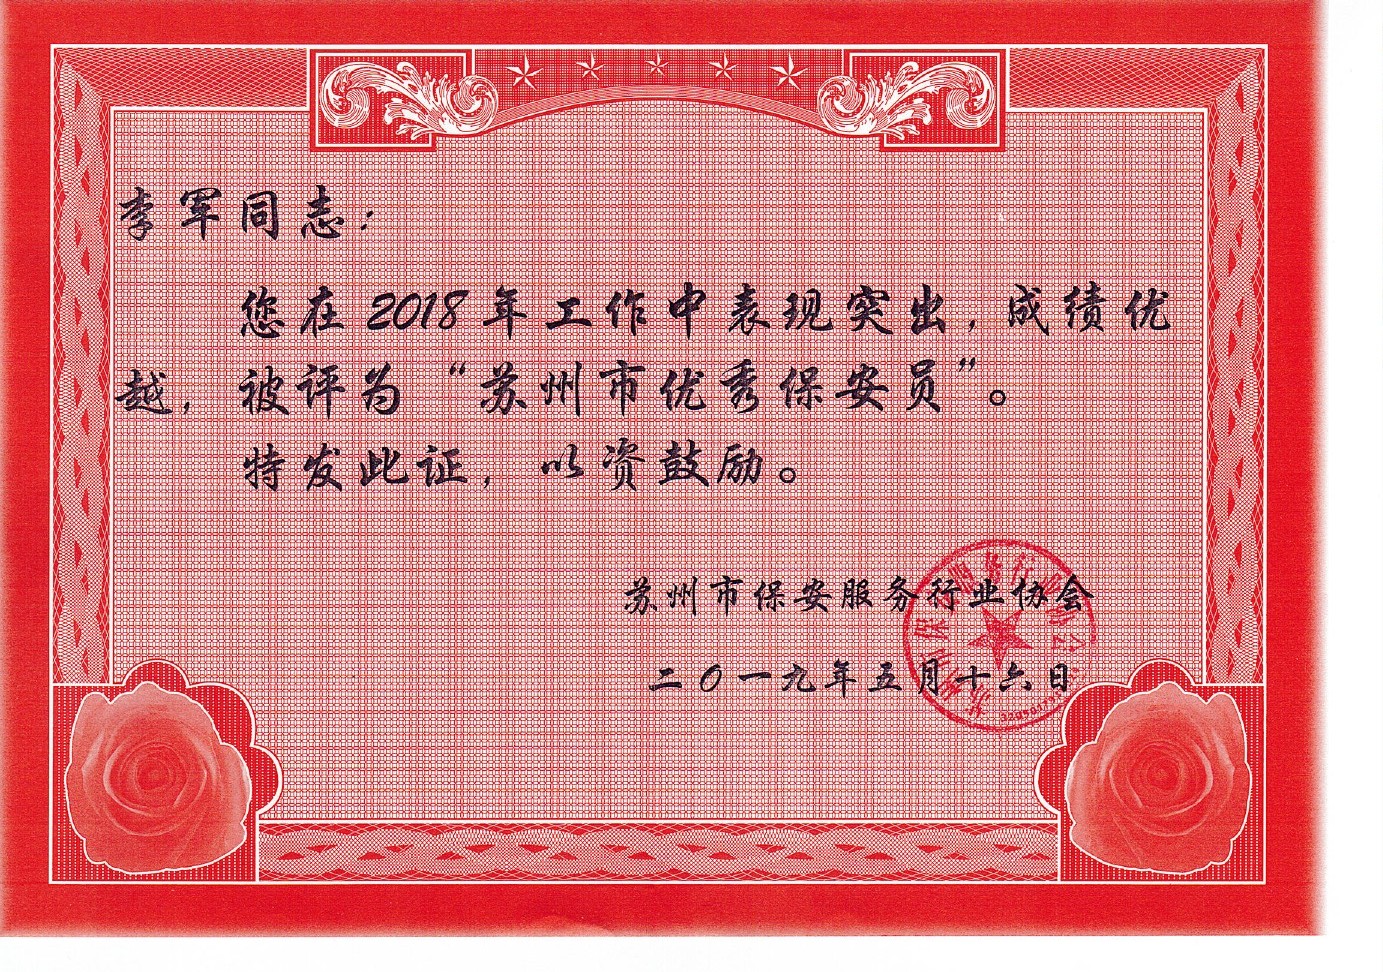 李军同志：
您在2018年工作中表现突出，成绩优
越，被评为“苏州市优秀保安员”。
特发此证，以资鼓励。
苏州市保安服务行业协会
二0一九年五月十六日